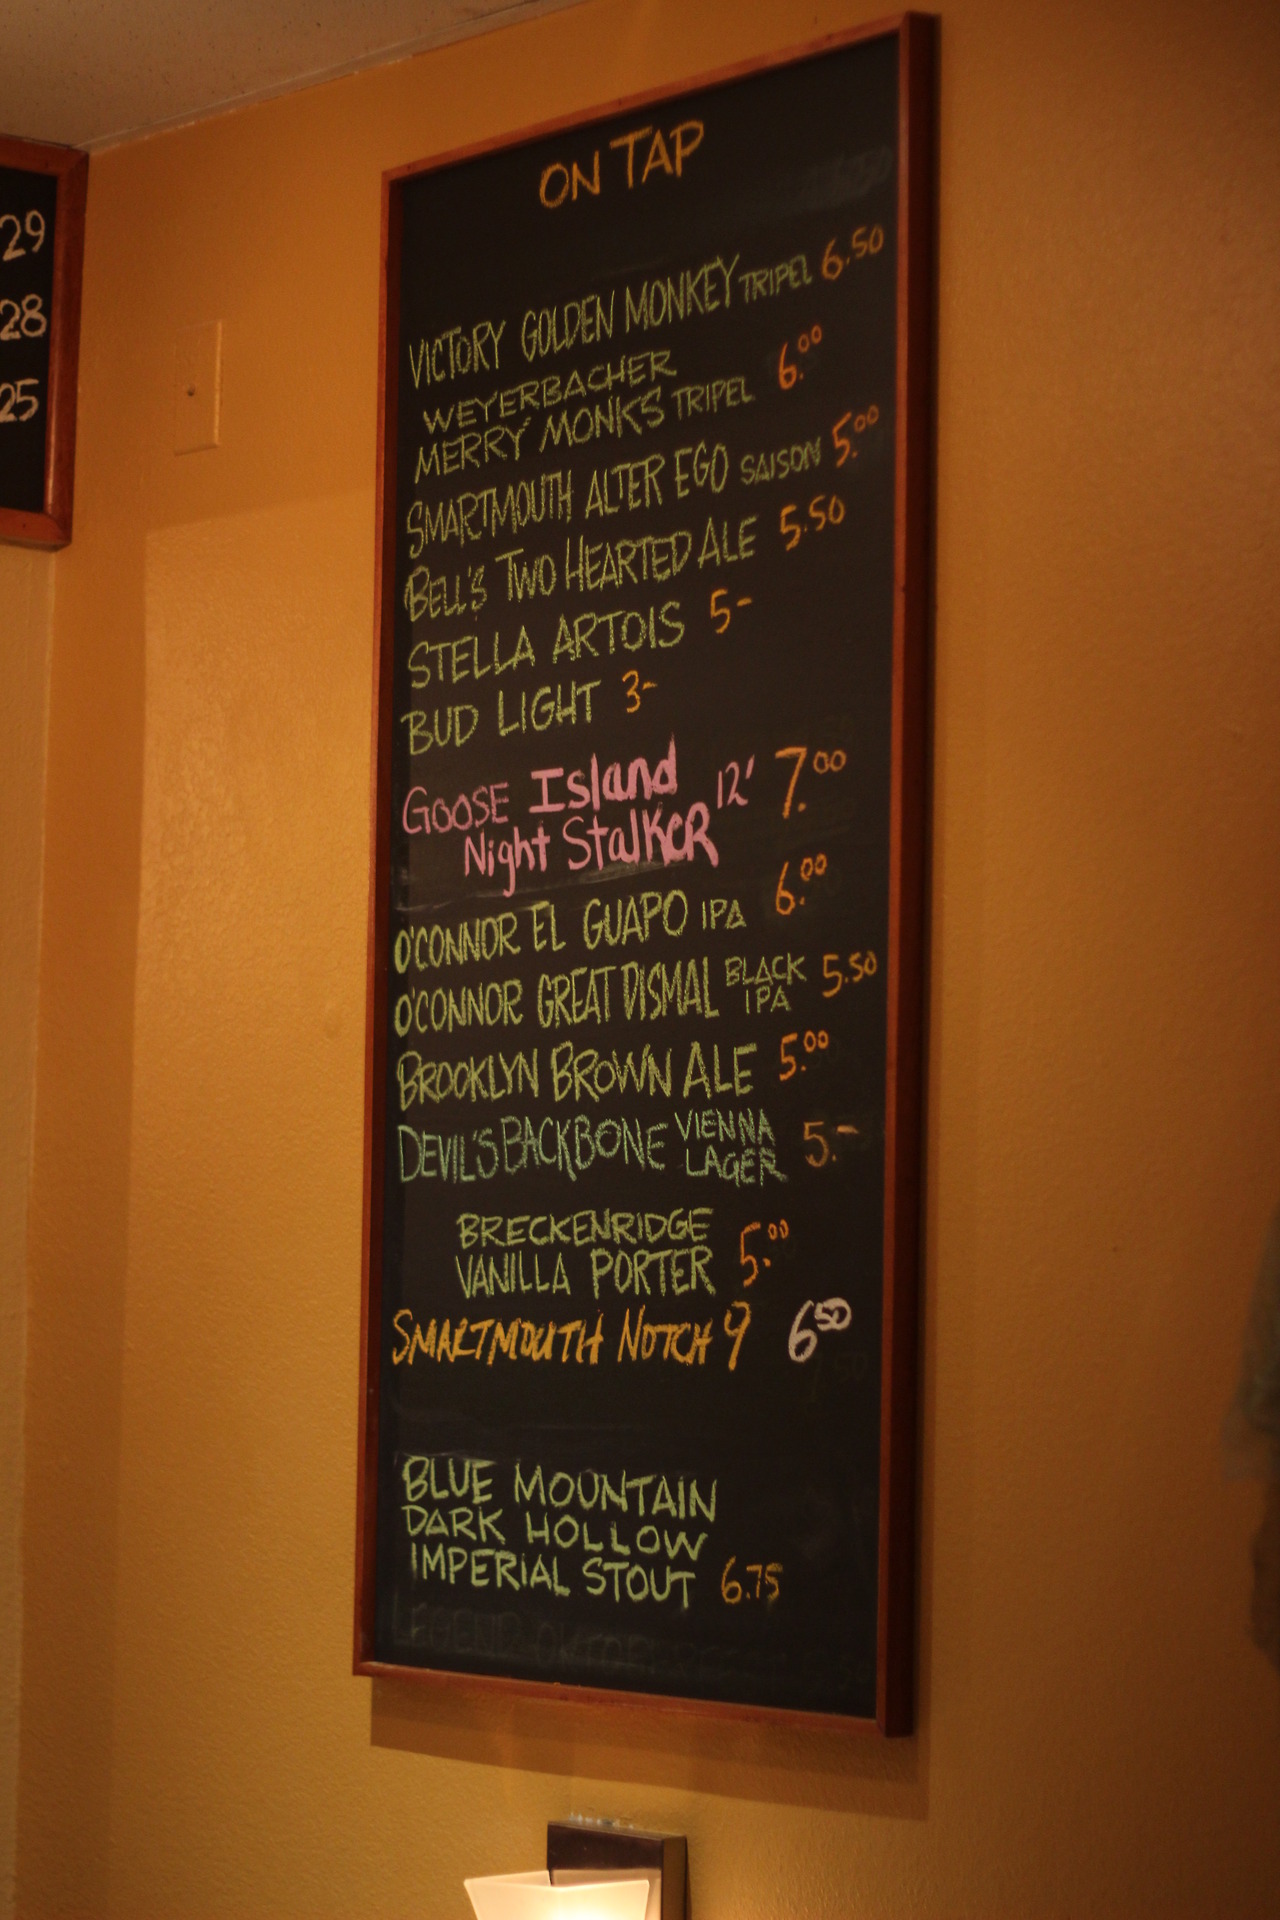 29
28
25
ON TAP
VICTORY GOLDEN MONKEY TRIPEL 6.50
WEYERBACHER
MERRY MONKS TRIPEL 6.00
SMARTMOUTH ALTER EGO SAISON 5.00
BELL'S TWO HEARTED ALE 5.50
STELLA ARTOIS 5-
BUD LIGHT 3-
GOOSE Island
Night StalKeR 12' 7.00
O'CONNOR EL GUAPO IPA 6.00
O'CONNOR GREAT DISMAL BLACK IPA 5.50
BROOKLYN BROWN ALE 5.00
DEVIL'S BACKBONE VIENNA LAGER 5.-
BRECKENRIDGE
VANILLA PORTER 5.00
SMARTMOUTH NOTCH 9 650
BLUE MOUNTAIN
DARK HOLLOW
IMPERIAL STOUT 6.75